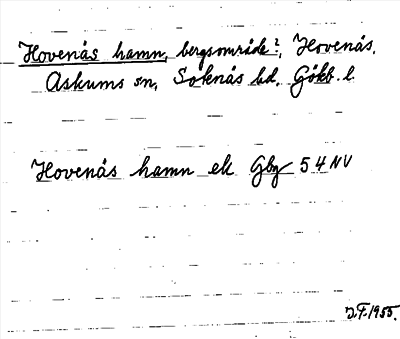 Hovenäs hamn, bergsområde?, Hovenäs,
Askums sn, Sotenäs hd. Gökb. l.
Hovenäs hamn ek Gbg 54 NV
J.F. 1955.